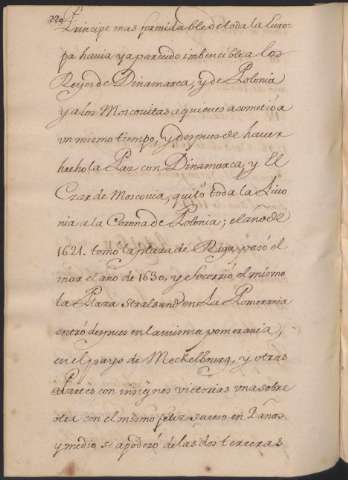 224
Principe mas formidable de toda la Euro-
pa havia ya parecido imbencible a los
Reyes de Dinamarca, y de Polonia
y a los Moscovitas a quienes acometió a
vn mismo tiempo, y despues de haver
hecho la Paz con Dinamarca, y El
Czar de Moscovia, quitó toda la Livo
nia a la Corona de Polonia; el año de
1621. tomo la plaza de Riga, pasó el
mar el año de 1630, y Socorrió el mismo
la Plaza Stralsund en La Pomerania
entró despues en la misma pomerania,
en el payo de Meckelbourg, y otras
Partes con insignes victorias vna sobre
otra con el mismo feliz suceso en 2 años
y medio se apoderó de las dos terceras